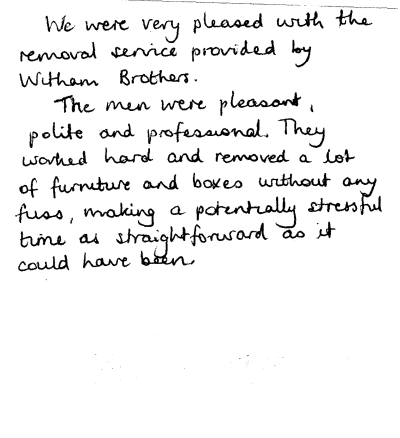 We were very pleased with the
removal service provided by
Witham Brothers.
The men were pleasant,
polite and professional. They
worked hard and removed a lot
of furniture and boxes without any
fuss, making a potentially stressful
time as straightforward as it
could have been.